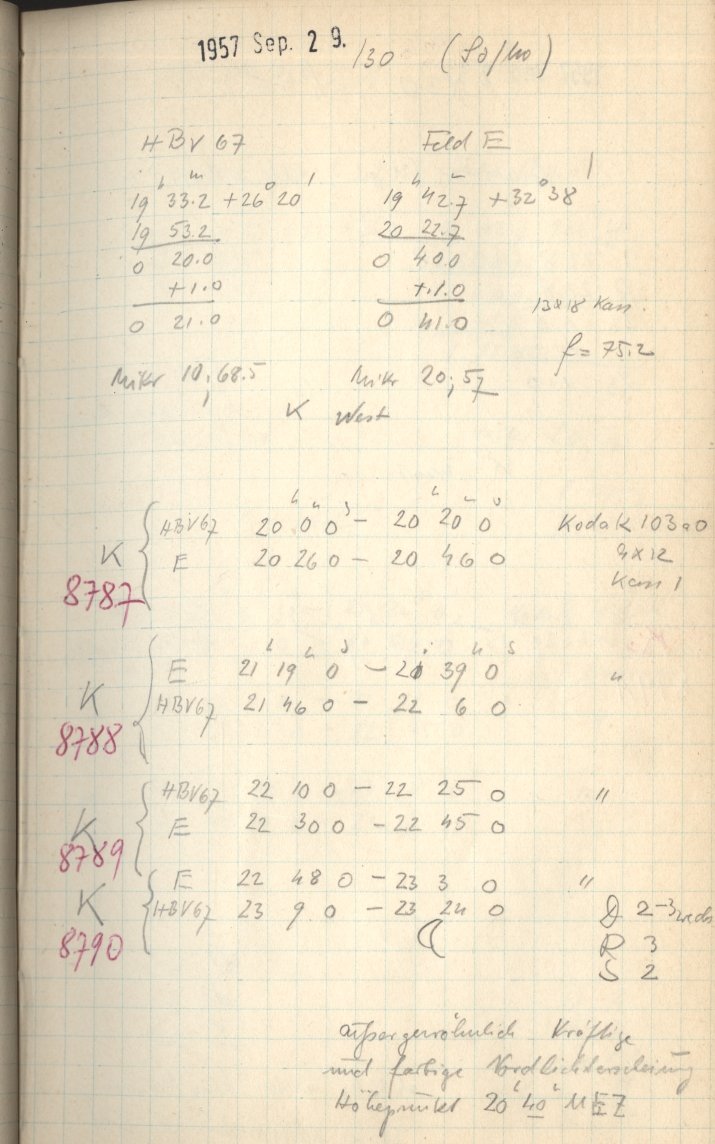 1957 Sep. 29. /30 (So/Mo)
HBV 67 Feld E
19ʰ 33.2ᵐ +26° 20' 19ʰ 42.7ᵐ +32° 38'
19 53.2 20 22.7
0 20.0 0 40.0
+1.0 +1.0
0 21.0 0 41.0 13x18 Kass.
f = 75.2
Mikr 10; 68.5 Mikr 20; 57
K West
K 8787
HBV67 20ʰ 0ᵐ 0ˢ – 20ʰ 20ᵐ 0ˢ Kodak 103a0
E 20 26 0 – 20 46 0 9x12
Kass 1
K 8788
E 21ʰ 19ᵐ 0ˢ – 21 39ᵐ 0ˢ "
HBV67 21 46 0 – 22 6 0
K 8789
HBV67 22 10 0 – 22 25 0 "
E 22 30 0 – 22 45 0
K 8790
E 22 48 0 – 23 3 0 "
HBV67 23 9 0 – 23 24 0 D 2-3
☾ R 3
S 2
außergewöhnlich kräftige
und farbige Nordlichterscheinung
Höhepunkt 20ʰ 40ᵐ MEZ